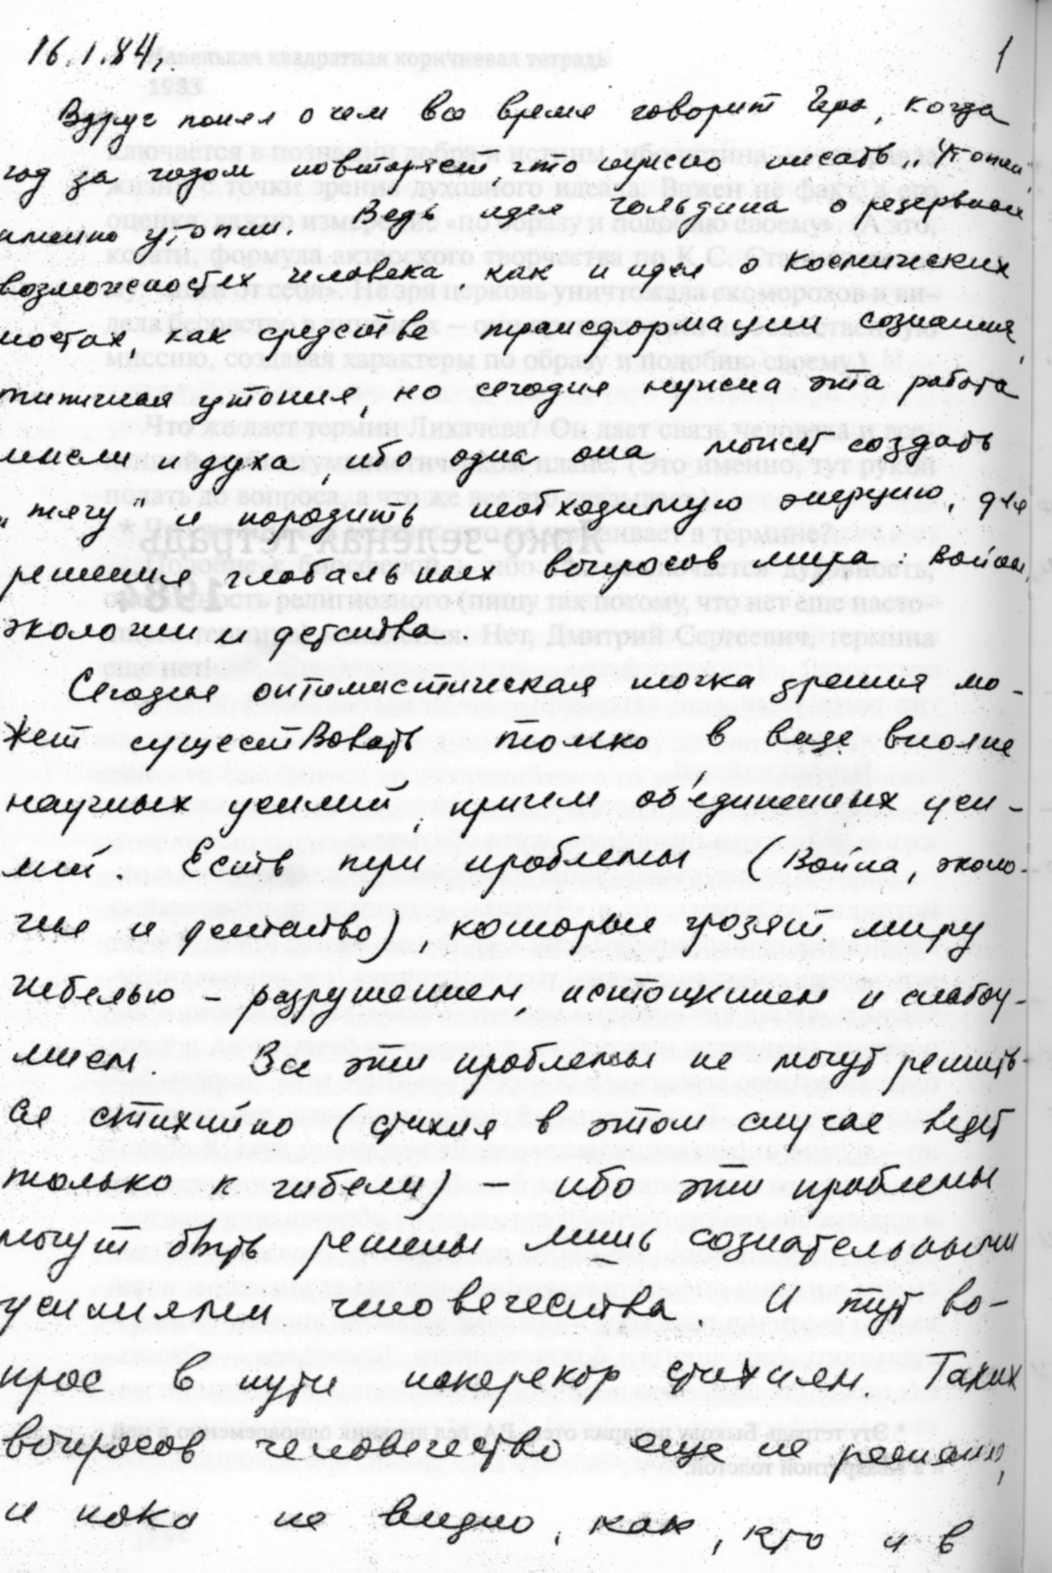 16.1.84.
1
Вдруг понял о чем все время говорит Гера, когда
год за годом повторяет, что нужно писать „Утопии",
именно утопии. Ведь идея Гольдина о резервных
возможностях человека, как и идея о космических
мостах, как средстве трансформации сознания,
типичная утопия, но сегодня нужна эта работа
мысли и духа, ибо одна она может создать
„тягу" и породить необходимую энергию, для
решения глобальных вопросов мира: войны,
экологии и детства.
Сегодня оптимистическая точка зрения мо-
жет существовать только в виде вполне
научных усилий, причем об'единенных уси-
лий. Есть три проблемы (война, эколо-
гия и детство), которые грозят миру
гибелью – разрушением, истощением и слабоу-
мием. Все эти проблемы не могут решить-
ся стихийно (стихия в этом случае ведет
только к гибели) – ибо эти проблемы
могут быть решены лишь сознательными
усилиями человечества. И тут во-
прос в пути наперекор стихиям. Таких
вопросов человечество еще не решало,
и пока не видно, как, кто и в